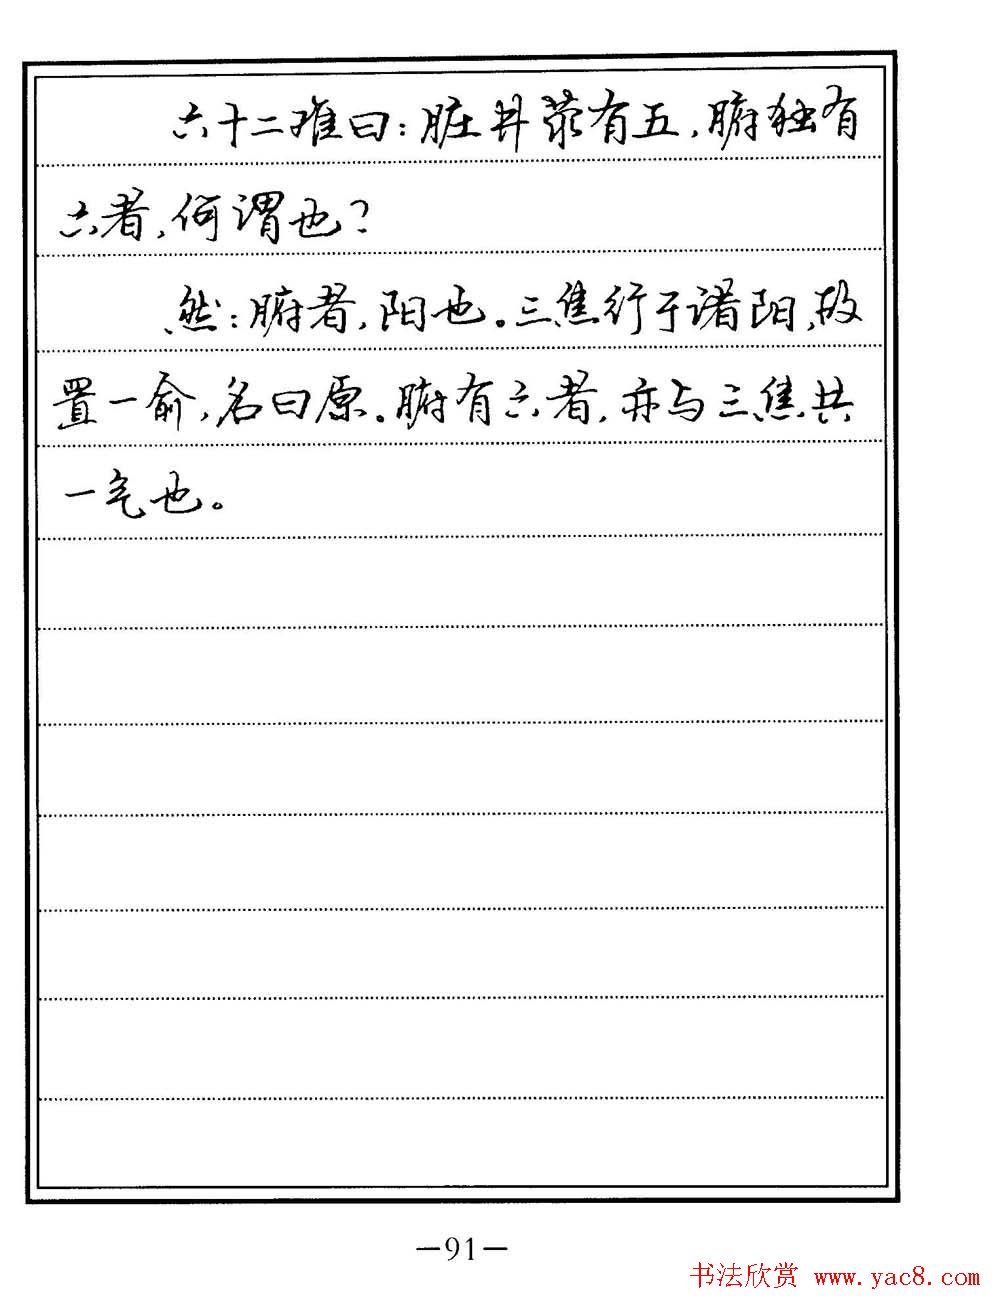 六十二难曰：脏井荥有五，腑独有
六者，何谓也？
然：腑者，阳也。三焦行于诸阳，故
置一俞，名曰原。腑有六者，亦与三焦共
一气也。
—91—
书法欣赏 www.yac8.com